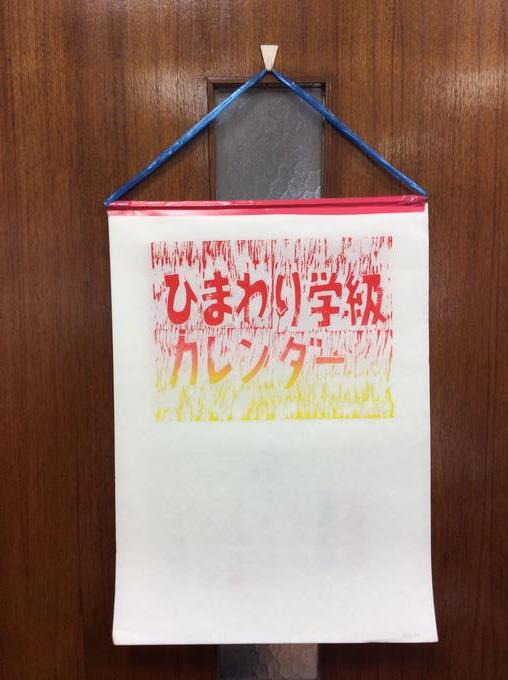 ひまわり学級
カレンダー